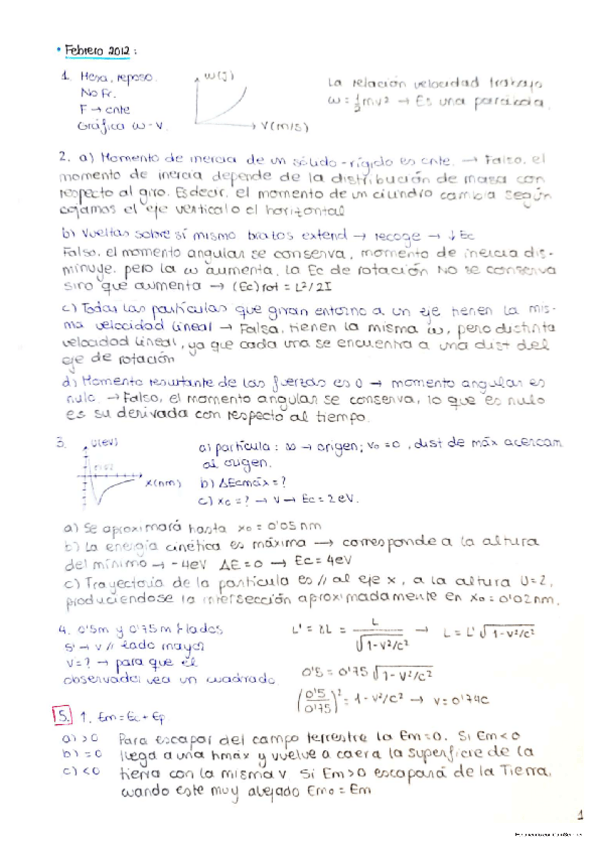 • Febrero 2012:
1. Mesa, reposo.
No Fr.
F → cnte
Gráfica ω - v.
ω(J)
v(m/s)
La relación velocidad trabajo
ω = ½mv² → Es una parábola.
2. a) Momento de inercia de un sólido-rígido es cnte. → Falso, el
momento de inercia depende de la distribución de masa con
respecto al giro. Es decir, el momento de un cilindro cambia según
cojamos el eje vertical o el horizontal
b) Vueltas sobre sí mismo brazos extend → recoge → ↓Ec
Falso, el momento angular se conserva, momento de inercia dis-
minuye, pero la ω aumenta, la Ec de rotación NO se conserva
sino que aumenta → (Ec)rot = L²/2I
c) Todas las partículas que giran entorno a un eje tienen la mis-
ma velocidad lineal → Falsa, tienen la misma ω, pero distinta
velocidad lineal, ya que cada una se encuentra a una dist del
eje de rotación
d) Momento resultante de las fuerzas es 0 → momento angular es
nulo. → Falso, el momento angular se conserva, lo que es nulo
es su derivada con respecto al tiempo.
3. U(eV)
x(nm)
a) partícula: ∞ → origen; v₀ = 0, dist de máx acercam
al origen.
b) ΔEcmáx = ?
c) x₀ = ? → v → Ec = 2eV.
a) Se aproximará hasta x₀ = 0'05 nm
b) La energía cinética es máxima → corresponde a la altura
del mínimo → -4eV ΔE = 0 → Ec = 4eV
c) Trayectoria de la partícula es // al eje x, a la altura U=2,
produciendose la intersección aproximadamente en x₀ = 0'02nm.
4. 0'5m y 0'75m lados
S' → v // lado mayor
v = ? → para que el
observador vea un cuadrado
L' = γL = L / √1-v²/c² → L = L' √1-v²/c²
0'5 = 0'75 √1-v²/c²
(0'5/0'75)² = 1-v²/c² → v = 0'74c
5. 1. Em = Ec + Ep
a) >0
b) =0
c) <0
Para escapar del campo terrestre la Em=0. Si Em<0
llega a una hmáx y vuelve a caer a la superficie de la
tierra con la misma v Si Em>0 escapará de la Tierra,
cuando este muy alejado Em₀ = Em
1